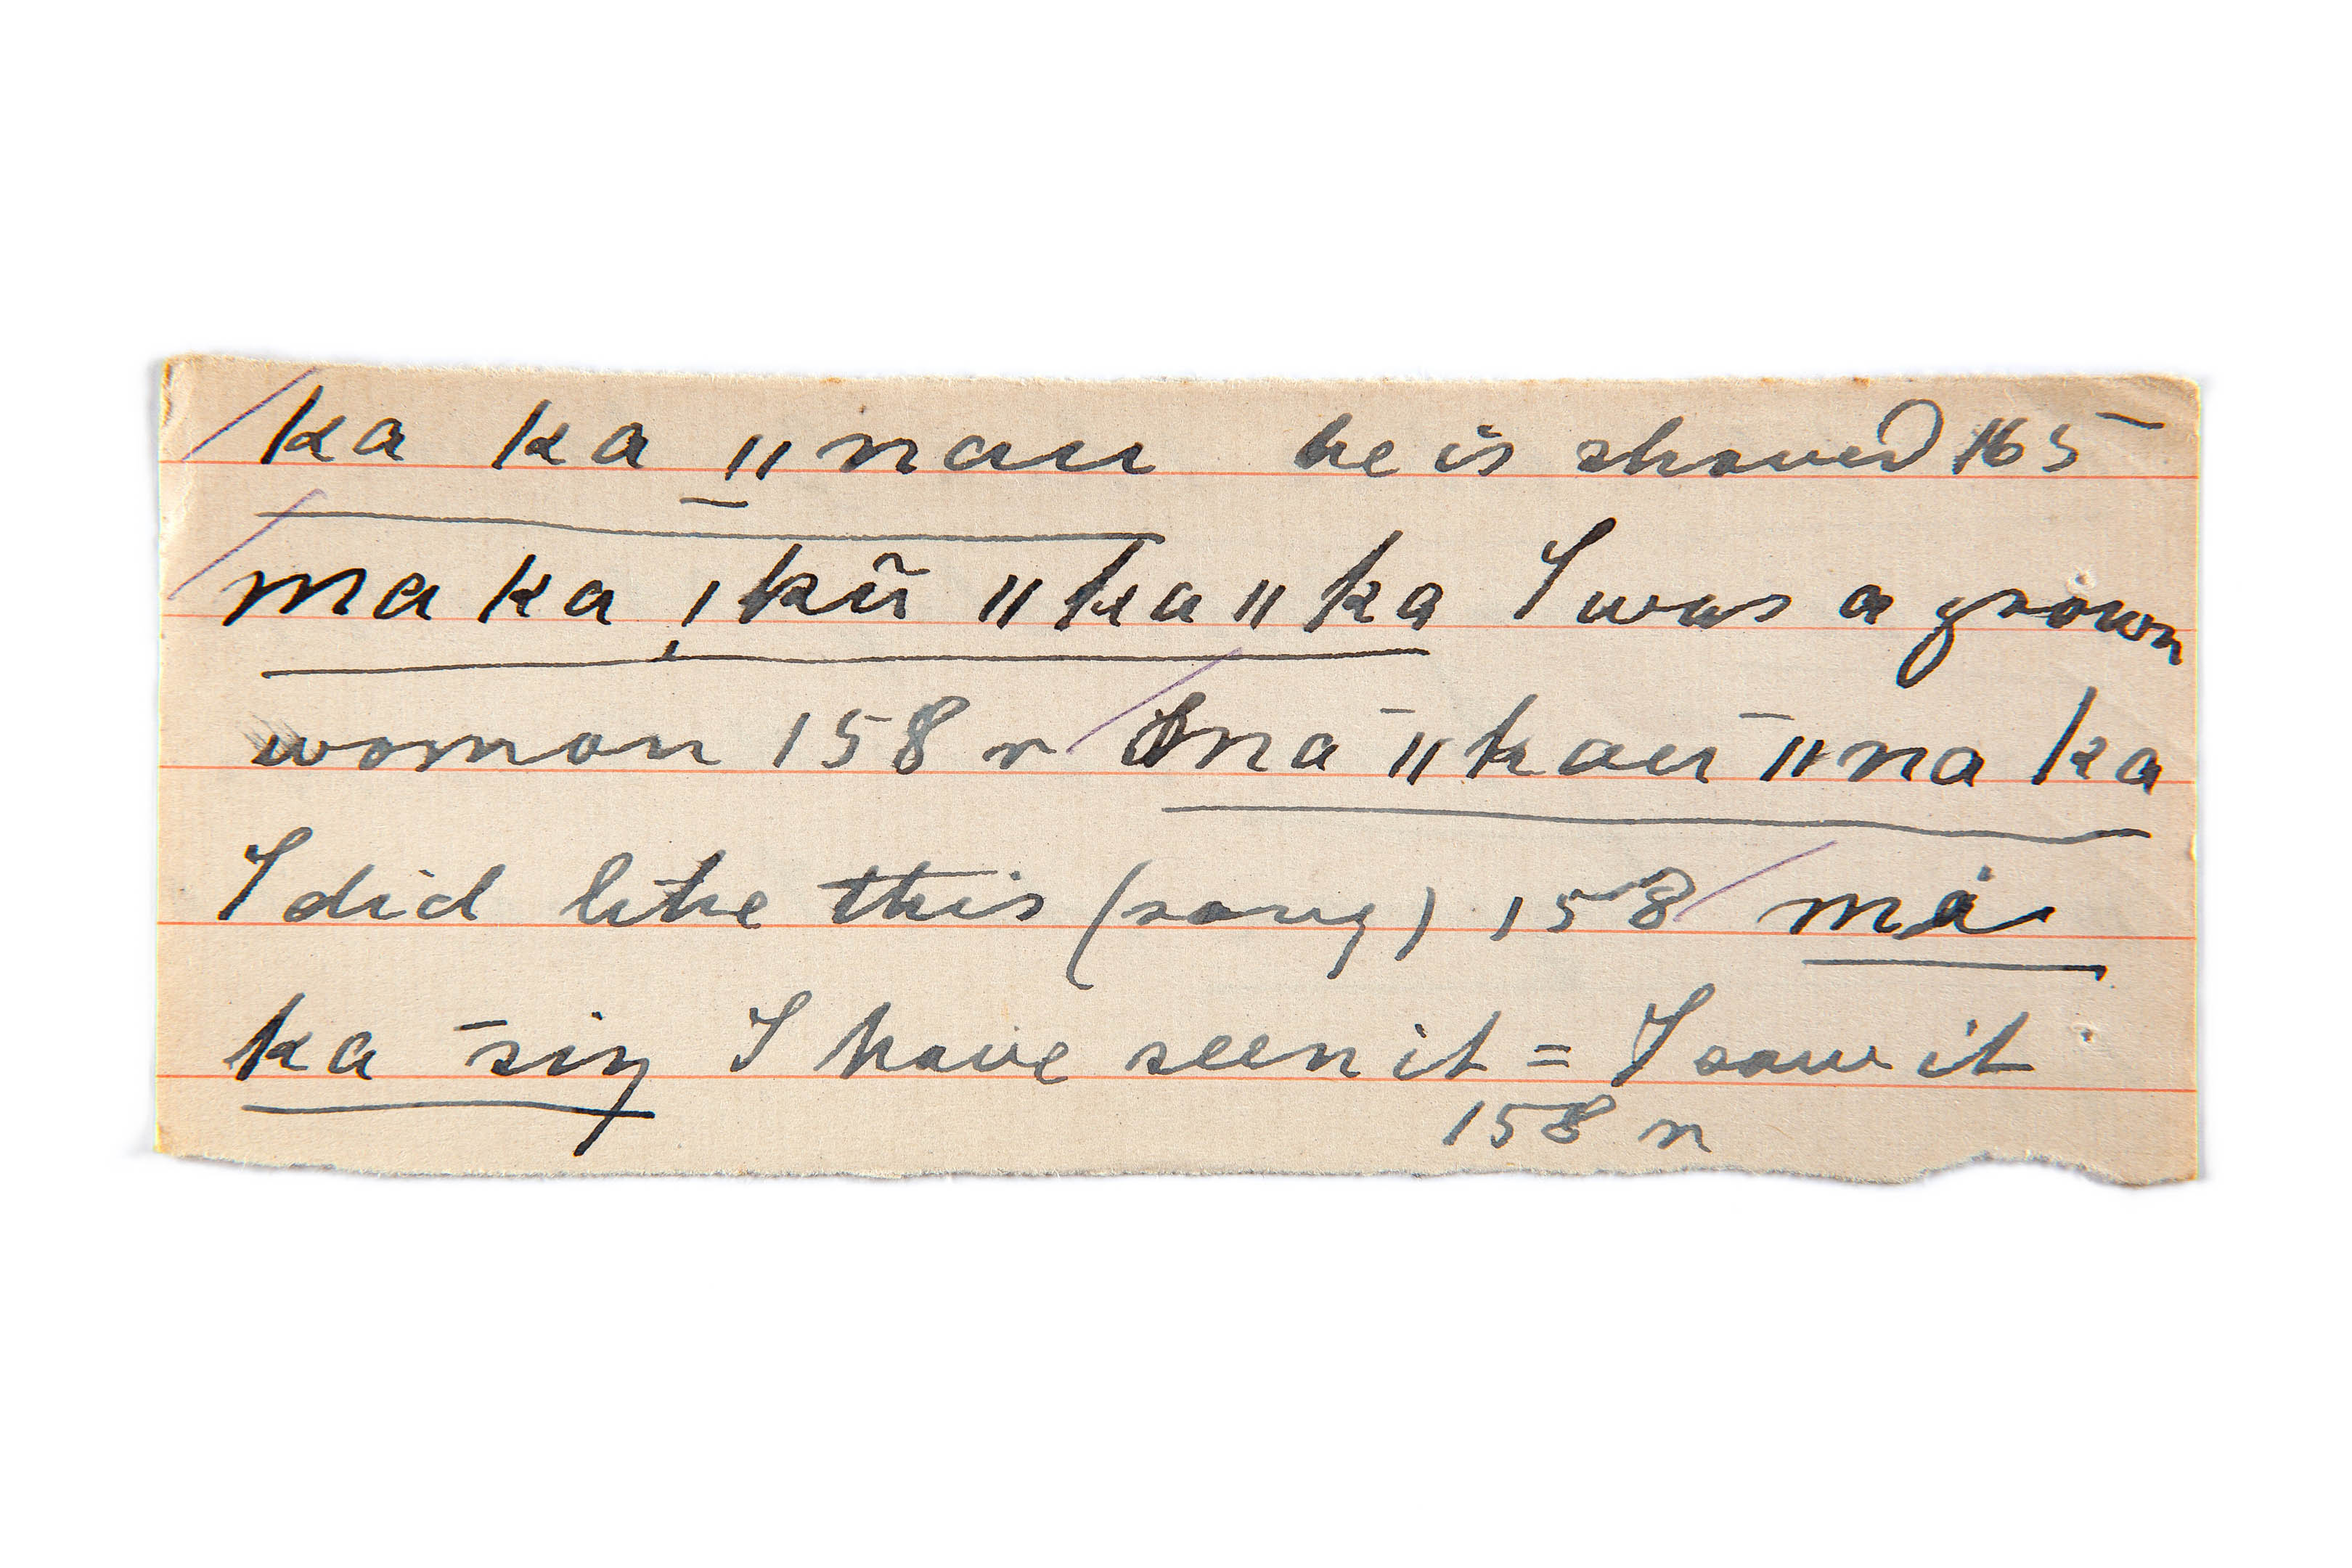 ka ka ǁnau he is shaved 165
ma ka ǃkũ ǁka ǁka I was a grown
woman 158 r ná ǁkau ǁna ka
I did like this (song) 158 ma
ka siŋ I have seen it = I saw it
158 r